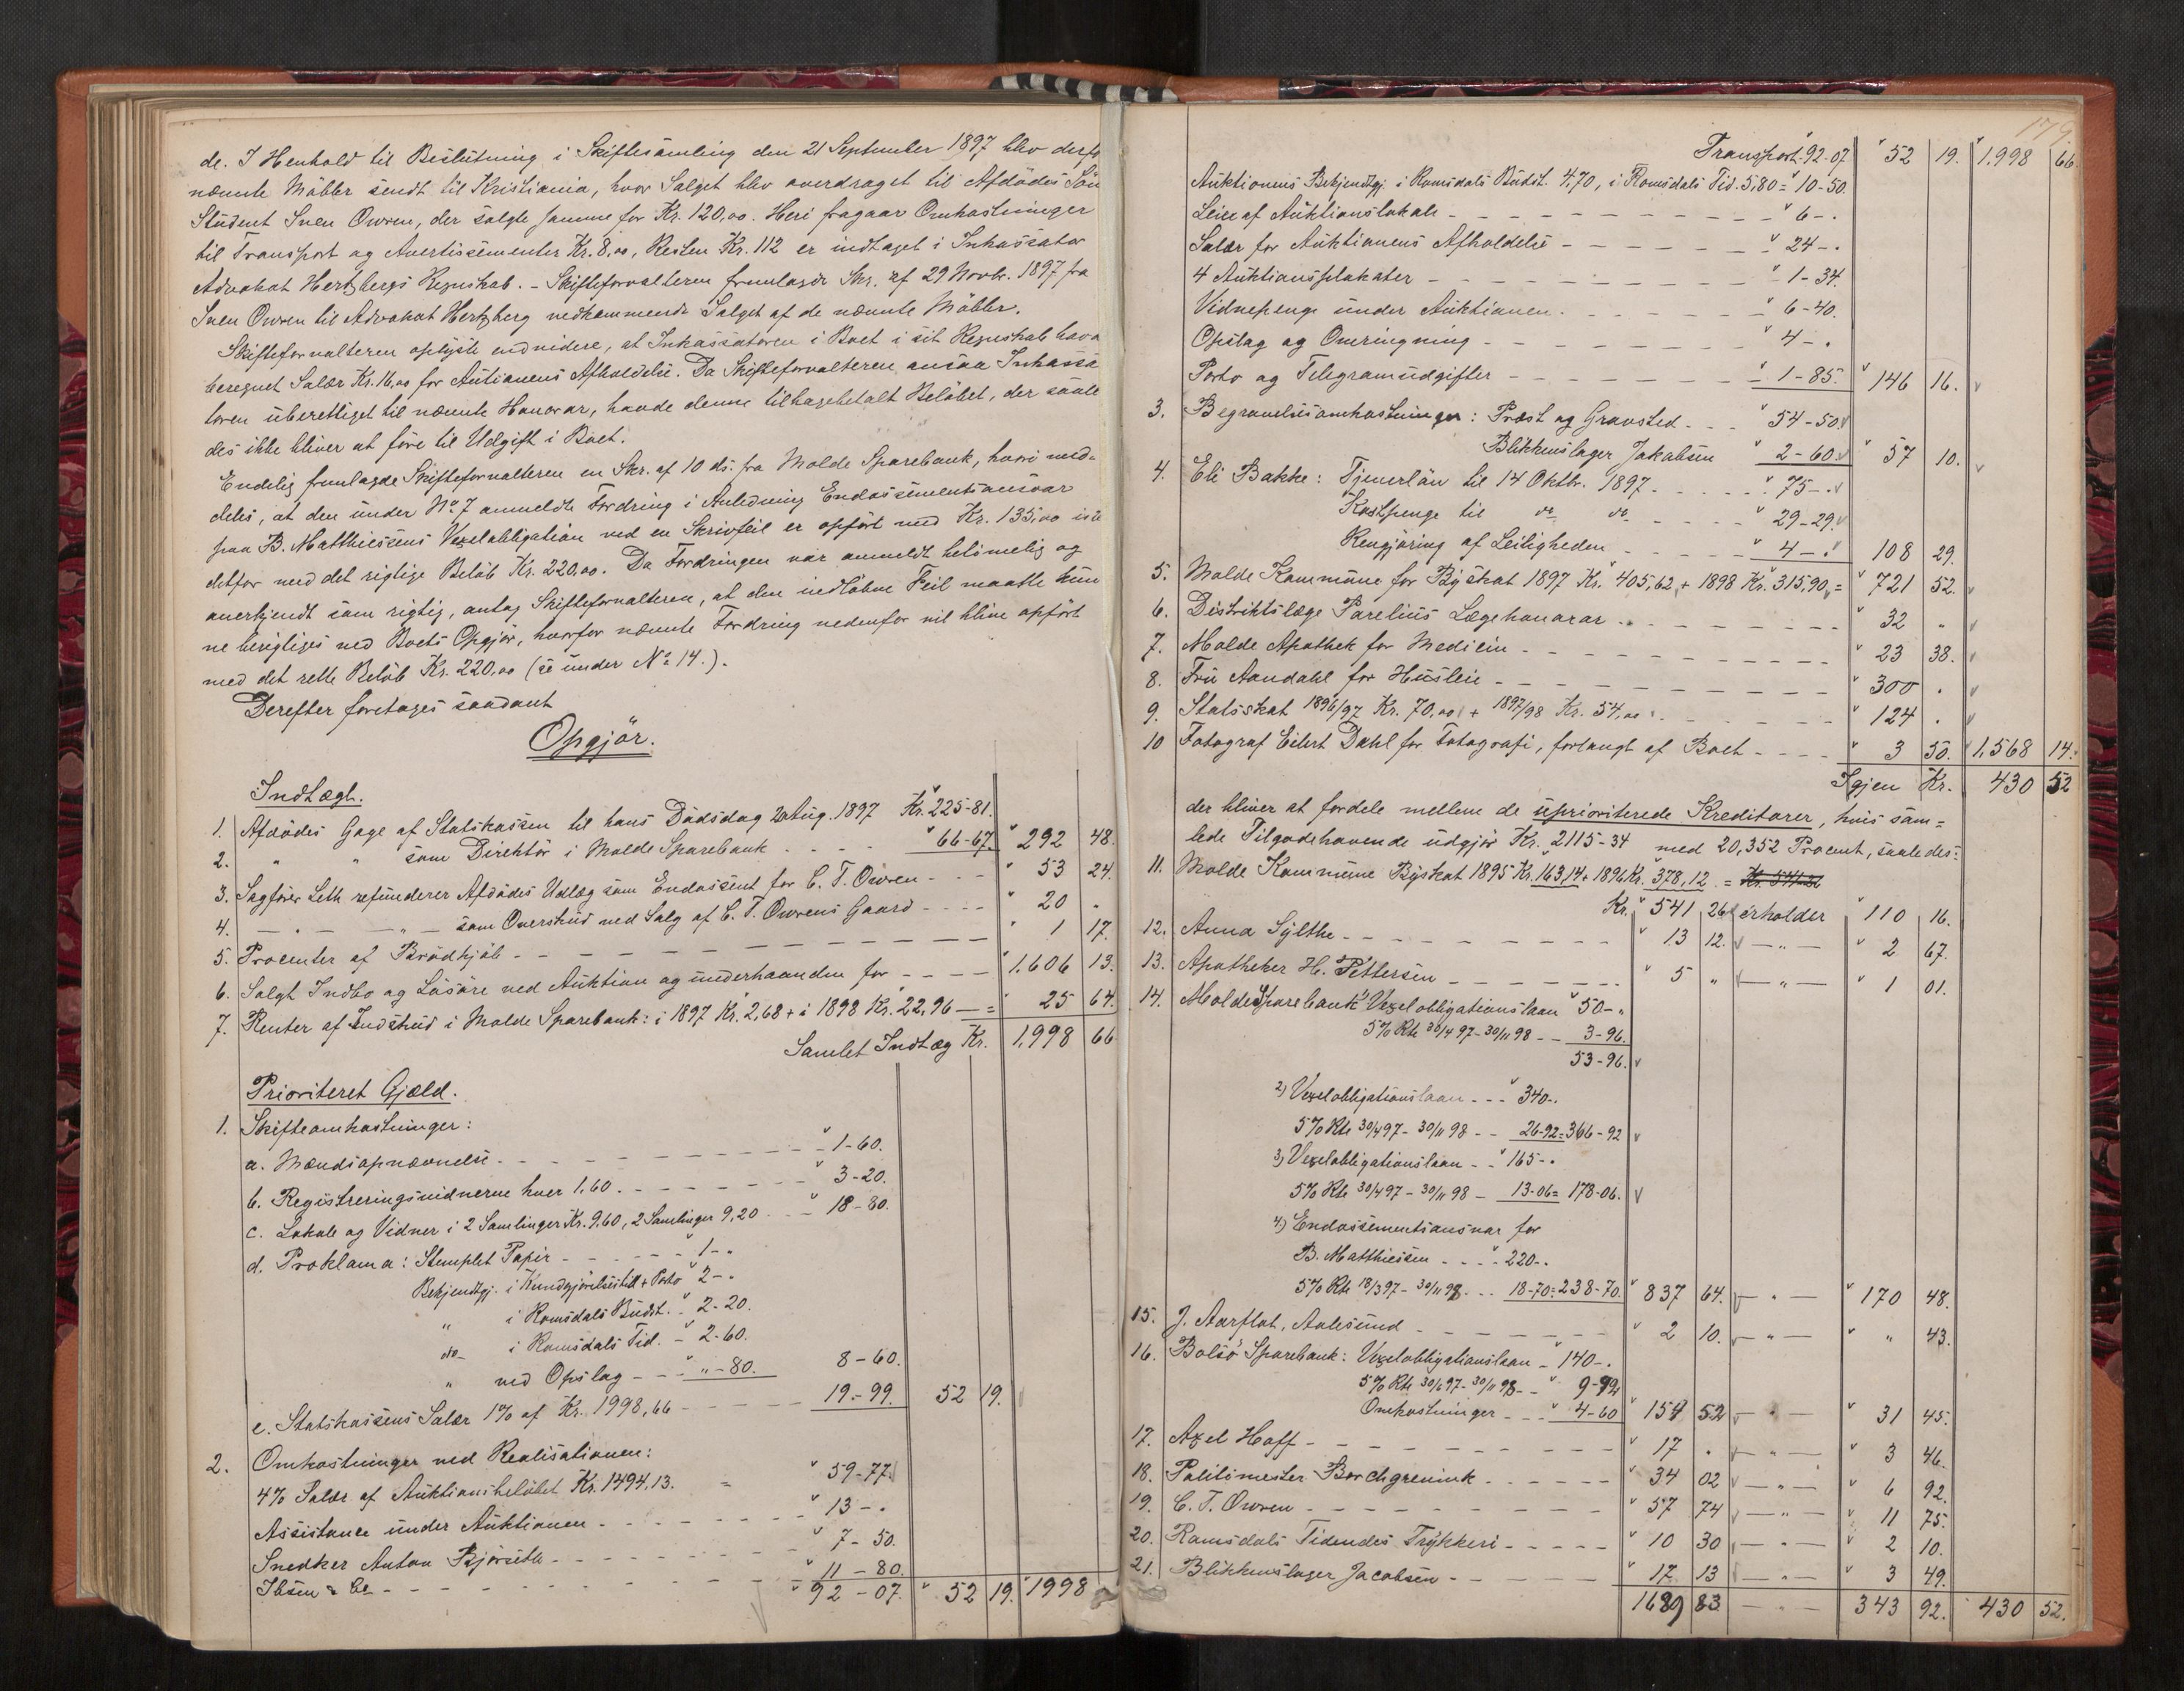 de. I Henhold til Beslutning i Skiftesamling den 21 September 1897 blev
nævnte Möbler sendt til Kristiania, hvor Salget blev overdraget til Afdödes Sön
Student Sven Owren, der solgte samme for Kr. 120,00. Heri fragaar Omkostninger
til Transport og Avertissementer Kr. 8,00, Resten Kr. 112 er indtaget i Inkassator
Advokat Hertzbergs Regnskab. – Skifteforvalteren fremlagde Skr. af 29 Novbr. 1897 fra
Sven Owren til Advokat Hertzberg vedkommende Salget af de nævnte Möbler.
Skifteforvalteren oplyste endvidere, at Inkassatoren i Boet i sit Regnskab havde
beregnet Salær Kr. 16,00 for Auktionens Afholdelse. Da Skifteforvalteren ansaa Inkassa
toren uberettiget til nævnte Honorar, havde denne tilbagebetalt Belöbet, der saale
des ikke bliver at före til Udgift i Boet.
Endelig fremlagde Skifteforvalteren en Skr. af 10 ds. fra Molde Sparebank, hvori med-
deles, at den under No 7 anmeldte Fordring i Anledning Endossementsansvar
paa B. Matthiessens Vexelobligation ved en Skrivfeil er opfört med Kr. 135,00 iste
detfor med det rigtige Belöb Kr. 220,00. Da Fordringen var anmeldt betimelig og
anerkjendt som rigtig, antog Skifteforvalteren, at den indlöbne Feil maatte kun
ne berigtiges ved Boets Opgjör, hvorfor nævnte Fordring nedenfor vil blive opfört
med det rette Belöb Kr. 220,00 (se under No 14.).
Derefter foretoges saadant
Opgjör.
Indtægt.
1. Afdödes Gage af Statskassen til hans Dödsdag 20 Aug. 1897 Kr. 225-81.
2. " " som Direktör i Molde Sparebank - - - " 66-67. " 292 48.
3. Sagförer Leth refunderer Afdödes Udlæg som Endossent for C. T. Owren - - - " 53 24.
4. — " — — " — som Overskud ved Salg af C. T. Owrens Gaard - - - - " 20 "
5. Procenter af Brödkjöb - - - - - - - " 1 17.
6. Solgt Indbo og Lösöre ved Auktion og underhaanden for - - - - " 1.606 13.
7. Renter af Indskud i Molde Sparebank: i 1897 Kr. 2,68 + i 1898 Kr. 22,96 — = " 25 64.
Samlet Indtæg Kr. 1,998 66
Prioriteret Gjæld.
1. Skifteomkostninger:
a. Mændsopnævnelse - - - - - - " 1-60.
b. Registreringsvidnerne hver 1,60 - - - - - " 3-20.
c. Lokale og Vidner i 2 Samlinger Kr. 9,60, 2 Samlinger 9,20 - - - " 18-80.
d. Proklama: Stemplet Papir - - - - - - " 1-"
Bekjendtgj. i Kundgjörelsestid + Porto " 2-.
" i Romsdals Budst. - " 2-20.
do- i Romsdals Tid. - " 2-60.
" ved Opslag - - - " "-80. 8-60.
e. Statskassens Salær 1% af Kr. 1998,66 - - - - - 19-99. 52 19.
2. Omkostninger ved Realisationen:
4% Salær af Auktionsbelöbet Kr. 1494,13. = " 59-77.
Assistance under Auktionen - - - - - - " 13-.
Snedker Anton Bjørseth - - - - - " 7-50.
Ibsen & Co - - - - - - " 11-80.
" 92-07. " 52 19. " 1998
179.
Transport " 92-07 " 52 19. " 1,998 66
Auktionens Bekjendtgj. i Romsdals Budst. 4,70, i Romsdals Tid. 5,80 = " 10-50.
Leie af Auktionslokale - - - - - - " 6-.
Salær for Auktionens Afholdelse - - - - - - " 24-.
4 Auktionsplakater - - - - - - " 1-34.
Vidnepenge under Auktionen - - - - - - " 6-40.
Opslag og Omringning - - - - - - " 4-.
Porto og Telegramudgifter - - - - - " 1-85. " 146 16.
3. Begravelsesomkostninger: Præst og Gravsted - - - " 54-50.
Blikkenslager Jakobsen " 2-60. " 57 10.
4. Eli Bakke: Tjenerlön til 14 Oktbr. 1897 - - - - - " 75-.
Kostpenge til do do - - - - " 29-29.
Rengjöring af Leiligheden - - - - - " 4-. " 108 29.
5. Molde Kommune for Byskat 1897 Kr. 405,62 + 1898 Kr. 315,90 = " 721 52.
6. Distriktslæge Parelius Lægehonorar - - - - - - " 32 "
7. Molde Apothek for Medicin - - - - - - " 23 38.
8. Fru Aandahl for Husleie - - - - - - " 300 .
9. Statsskat 1896/97 Kr. 70,00 + 1897/98 Kr. 54,00 - - - - - " 124 .
10 Fotograf Eilert Dahl for Fotografi, forlangt af Boet - - - - " 3 50. " 1,568 14.
Igjen Kr. 430 52
der bliver at fordele mellem de uprioriterede Kreditorer, hvis sam=
lede Tilgodehavende udgjör Kr. 2115-34 med 20,352 Procent, saaledes:
11. Molde Kommune Byskat 1895 Kr. 163,14 + 1896 Kr. 378,12 = Kr. 541-26
Kr. 541 26 erholder " 110 16.
12. Anna Sylthe - - - - - - " 13 12. — " — " 2 67.
13. Apotheker H. Pettersen - - - - - - " 5 " — " — " 1 01.
14. Molde Sparebank 1) Vexelobligationslaan " 50-"
5% Rte 30/4 97 - 30/11 98 - - 3-96.
53-96.
2) Vexelobligationslaan - - - " 340-.
5% Rte 30/4 97 - 30/11 98 - - 26-92 = 366-92
3) Vexelobligationslaan - - " 165-.
5% Rte 30/4 97 - 30/11 98 - 13-06 = 178-06.
4) Endossementsansvar for
B. Matthiesen - - - - " 220-.
5% Rte 18/3 97 - 30/11 98 - - - 18-70 = 238-70. " 837 64. — " — " 170 48.
15. J. Aarflot, Aalesund - - - - - - " 2 10. — " — " " 43.
16. Bolsö Sparebank: Vexelobligationslaan - " 140-.
5% Rte 30/6 97 - 30/11 98 - - " 9-92
Omkostninger - - - " 4-60 " 154 52 — " — " 31 45.
17. Axel Hoff - - - - - - " 17 . — " — " 3 46.
18. Politimester Borchgrevink - - - - - - " 34 02 — " — " 6 92.
19. C. T. Owren - - - - - - " 57 74 — " — " 11 75.
20. Romsdals Tidendes Trykkeri - - - - - " 10 30 — " — " 2 10.
21. Blikkenslager Jacobsen - - - - - " 17 13 — " — " 3 49.
1689 83 — " — 343 92. 430 52.